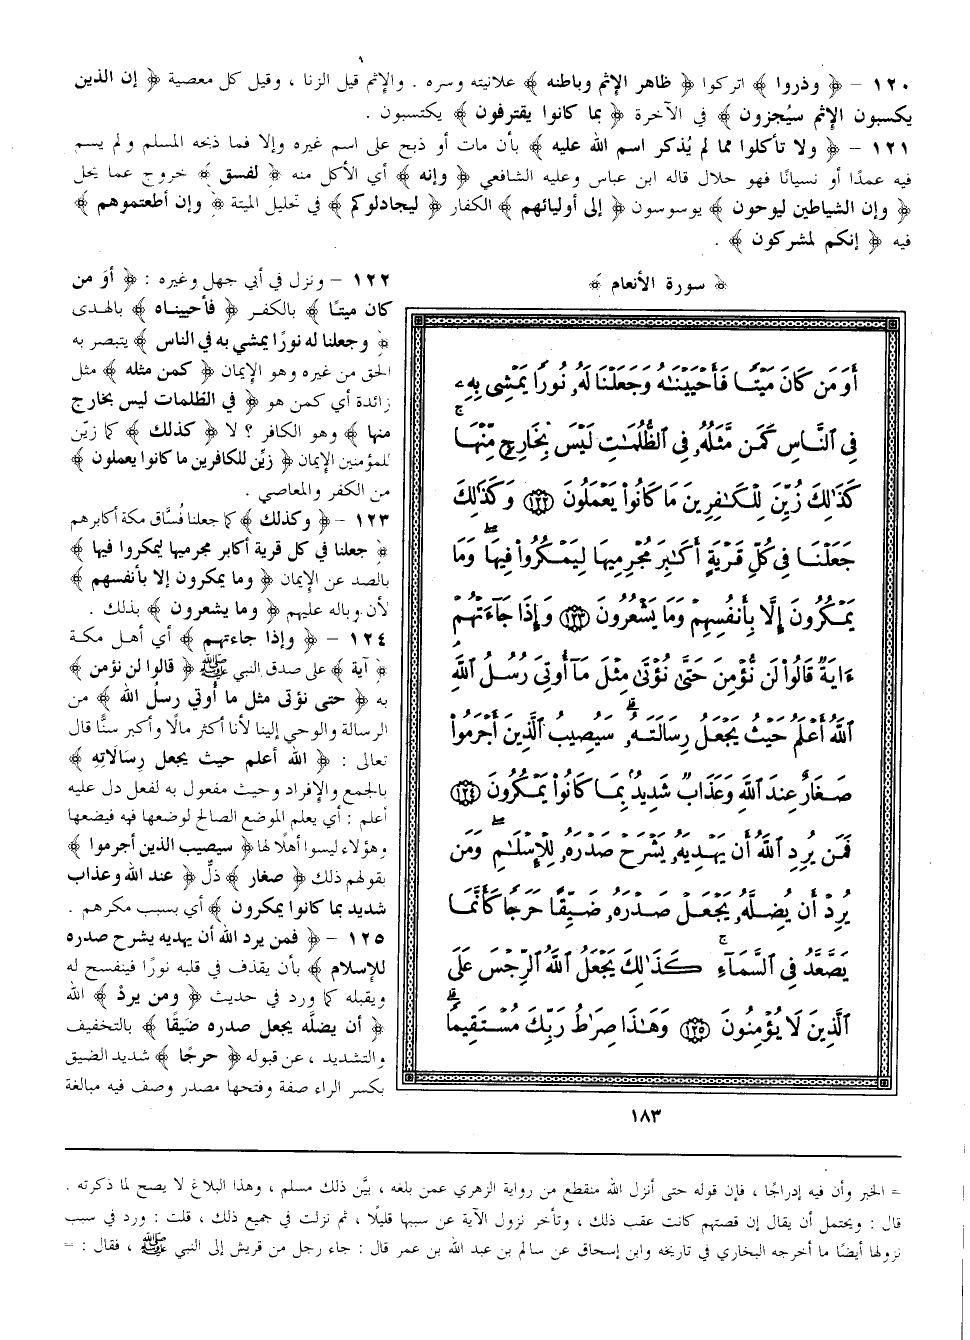 ١٢٠ – ﴿ وذروا ﴾ اتركوا ﴿ ظاهر الإثم وباطنه ﴾ علانيته وسره . والإثم قيل الزنا ، وقيل كل معصية ﴿ إن الذين
يكسبون الإثم سيُجزون ﴾ في الآخرة ﴿ بما كانوا يقترفون ﴾ يكتسبون .
١٢١ – ﴿ ولا تأكلوا مما لم يُذكر اسم الله عليه ﴾ بأن مات أو ذبح على اسم غيره وإلا فما ذبحه المسلم ولم يسم
فيه عمدًا أو نسيانًا فهو حلال قاله ابن عباس وعليه الشافعي ﴿ وإنه ﴾ أي الأكل منه ﴿ لفسق ﴾ خروج عما يحل
﴿ وإن الشياطين ليوحون ﴾ يوسوسون ﴿ إلى أوليائهم ﴾ الكفار ﴿ ليجادلوكم ﴾ في تحليل الميتة ﴿ وإن أطعتموهم ﴾
فيه ﴿ إنكم لمشركون ﴾ .
﴿ سورة الأنعام ﴾
أَوَمَن كَانَ مَيْتًا فَأَحْيَيْنَٰهُ وَجَعَلْنَا لَهُۥ نُورًا يَمْشِى بِهِۦ
فِى ٱلنَّاسِ كَمَن مَّثَلُهُۥ فِى ٱلظُّلُمَٰتِ لَيْسَ بِخَارِجٍ مِّنْهَا ۚ
كَذَٰلِكَ زُيِّنَ لِلْكَٰفِرِينَ مَا كَانُوا۟ يَعْمَلُونَ ١٢٢ وَكَذَٰلِكَ
جَعَلْنَا فِى كُلِّ قَرْيَةٍ أَكَٰبِرَ مُجْرِمِيهَا لِيَمْكُرُوا۟ فِيهَا ۖ وَمَا
يَمْكُرُونَ إِلَّا بِأَنفُسِهِمْ وَمَا يَشْعُرُونَ ١٢٣ وَإِذَا جَآءَتْهُمْ
ءَايَةٌ قَالُوا۟ لَن نُّؤْمِنَ حَتَّىٰ نُؤْتَىٰ مِثْلَ مَآ أُوتِىَ رُسُلُ ٱللَّهِ ۘ
ٱللَّهُ أَعْلَمُ حَيْثُ يَجْعَلُ رِسَالَتَهُۥ ۗ سَيُصِيبُ ٱلَّذِينَ أَجْرَمُوا۟
صَغَارٌ عِندَ ٱللَّهِ وَعَذَابٌ شَدِيدٌۢ بِمَا كَانُوا۟ يَمْكُرُونَ ١٢٤
فَمَن يُرِدِ ٱللَّهُ أَن يَهْدِيَهُۥ يَشْرَحْ صَدْرَهُۥ لِلْإِسْلَٰمِ ۖ وَمَن
يُرِدْ أَن يُضِلَّهُۥ يَجْعَلْ صَدْرَهُۥ ضَيِّقًا حَرَجًا كَأَنَّمَا
يَصَّعَّدُ فِى ٱلسَّمَآءِ ۚ كَذَٰلِكَ يَجْعَلُ ٱللَّهُ ٱلرِّجْسَ عَلَى
ٱلَّذِينَ لَا يُؤْمِنُونَ ١٢٥ وَهَٰذَا صِرَٰطُ رَبِّكَ مُسْتَقِيمًا ۗ
١٨٣
١٢٢ – ونزل في أبي جهل وغيره : ﴿ أوَ من
كان ميتًا ﴾ بالكفر ﴿ فأحييناه ﴾ بالهدى
﴿ وجعلنا له نورًا يمشي به في الناس ﴾ يتبصر به
الحق من غيره وهو الإيمان ﴿ كمن مثله ﴾ مثل
زائدة أي كمن هو ﴿ في الظلمات ليس بخارج
منها ﴾ وهو الكافر ؟ لا ﴿ كذلك ﴾ كما زيّن
للمؤمنين الإيمان ﴿ زيِّن للكافرين ما كانوا يعملون ﴾
من الكفر والمعاصي .
١٢٣ – ﴿ وكذلك ﴾ كما جعلنا فُسَّاق مكة أكابرهم
﴿ جعلنا في كل قرية أكابر مجرميها ليمكروا فيها ﴾
بالصد عن الإيمان ﴿ وما يمكرون إلا بأنفسهم ﴾
لأن وباله عليهم ﴿ وما يشعرون ﴾ بذلك .
١٢٤ – ﴿ وإذا جاءتهم ﴾ أي أهل مكة
﴿ آية ﴾ على صدق النبي ﷺ ﴿ قالوا لن نؤمن ﴾
به ﴿ حتى نؤتى مثل ما أوتي رسلُ الله ﴾ من
الرسالة والوحي إلينا لأنا أكثر مالًا وأكبر سنًّا قال
تعالى : ﴿ الله أعلم حيث يجعل رسالاتِهِ ﴾
بالجمع والإفراد وحيث مفعول به لفعل دل عليه
أعلم : أي يعلم الموضع الصالح لوضعها فيه فيضعها
وهؤلاء ليسوا أهلًا لها ﴿ سيصيب الذين أجرموا ﴾
بقولهم ذلك ﴿ صغار ﴾ ذلٌّ ﴿ عند الله وعذاب
شديد بما كانوا يمكرون ﴾ أي بسبب مكرهم .
١٢٥ – ﴿ فمن يرد الله أن يهديه يشرح صدره
للإسلام ﴾ بأن يقذف في قلبه نورًا فينفسح له
ويقبله كما ورد في حديث ﴿ ومن يردْ ﴾ الله
﴿ أن يضلَّه يجعل صدره ضَيقًا ﴾ بالتخفيف
والتشديد ، عن قبوله ﴿ حرجًا ﴾ شديد الضيق
بكسر الراء صفة وفتحها مصدر وصف فيه مبالغة
= الخبر وأن فيه إدراجًا ، فإن قوله حتى أنزل الله منقطع من رواية الزهري عمن بلغه ، بيَّن ذلك مسلم ، وهذا البلاغ لا يصح لما ذكرته .
قال : ويحتمل أن يقال إن قصتهم كانت عقب ذلك ، وتأخر نزول الآية عن سببها قليلًا ، ثم نزلت في جميع ذلك ، قلت : ورد في سبب
نزولها أيضًا ما أخرجه البخاري في تاريخه وابن إسحاق عن سالم بن عبد الله بن عمر قال : جاء رجل من قريش إلى النبي ﷺ ، فقال : =